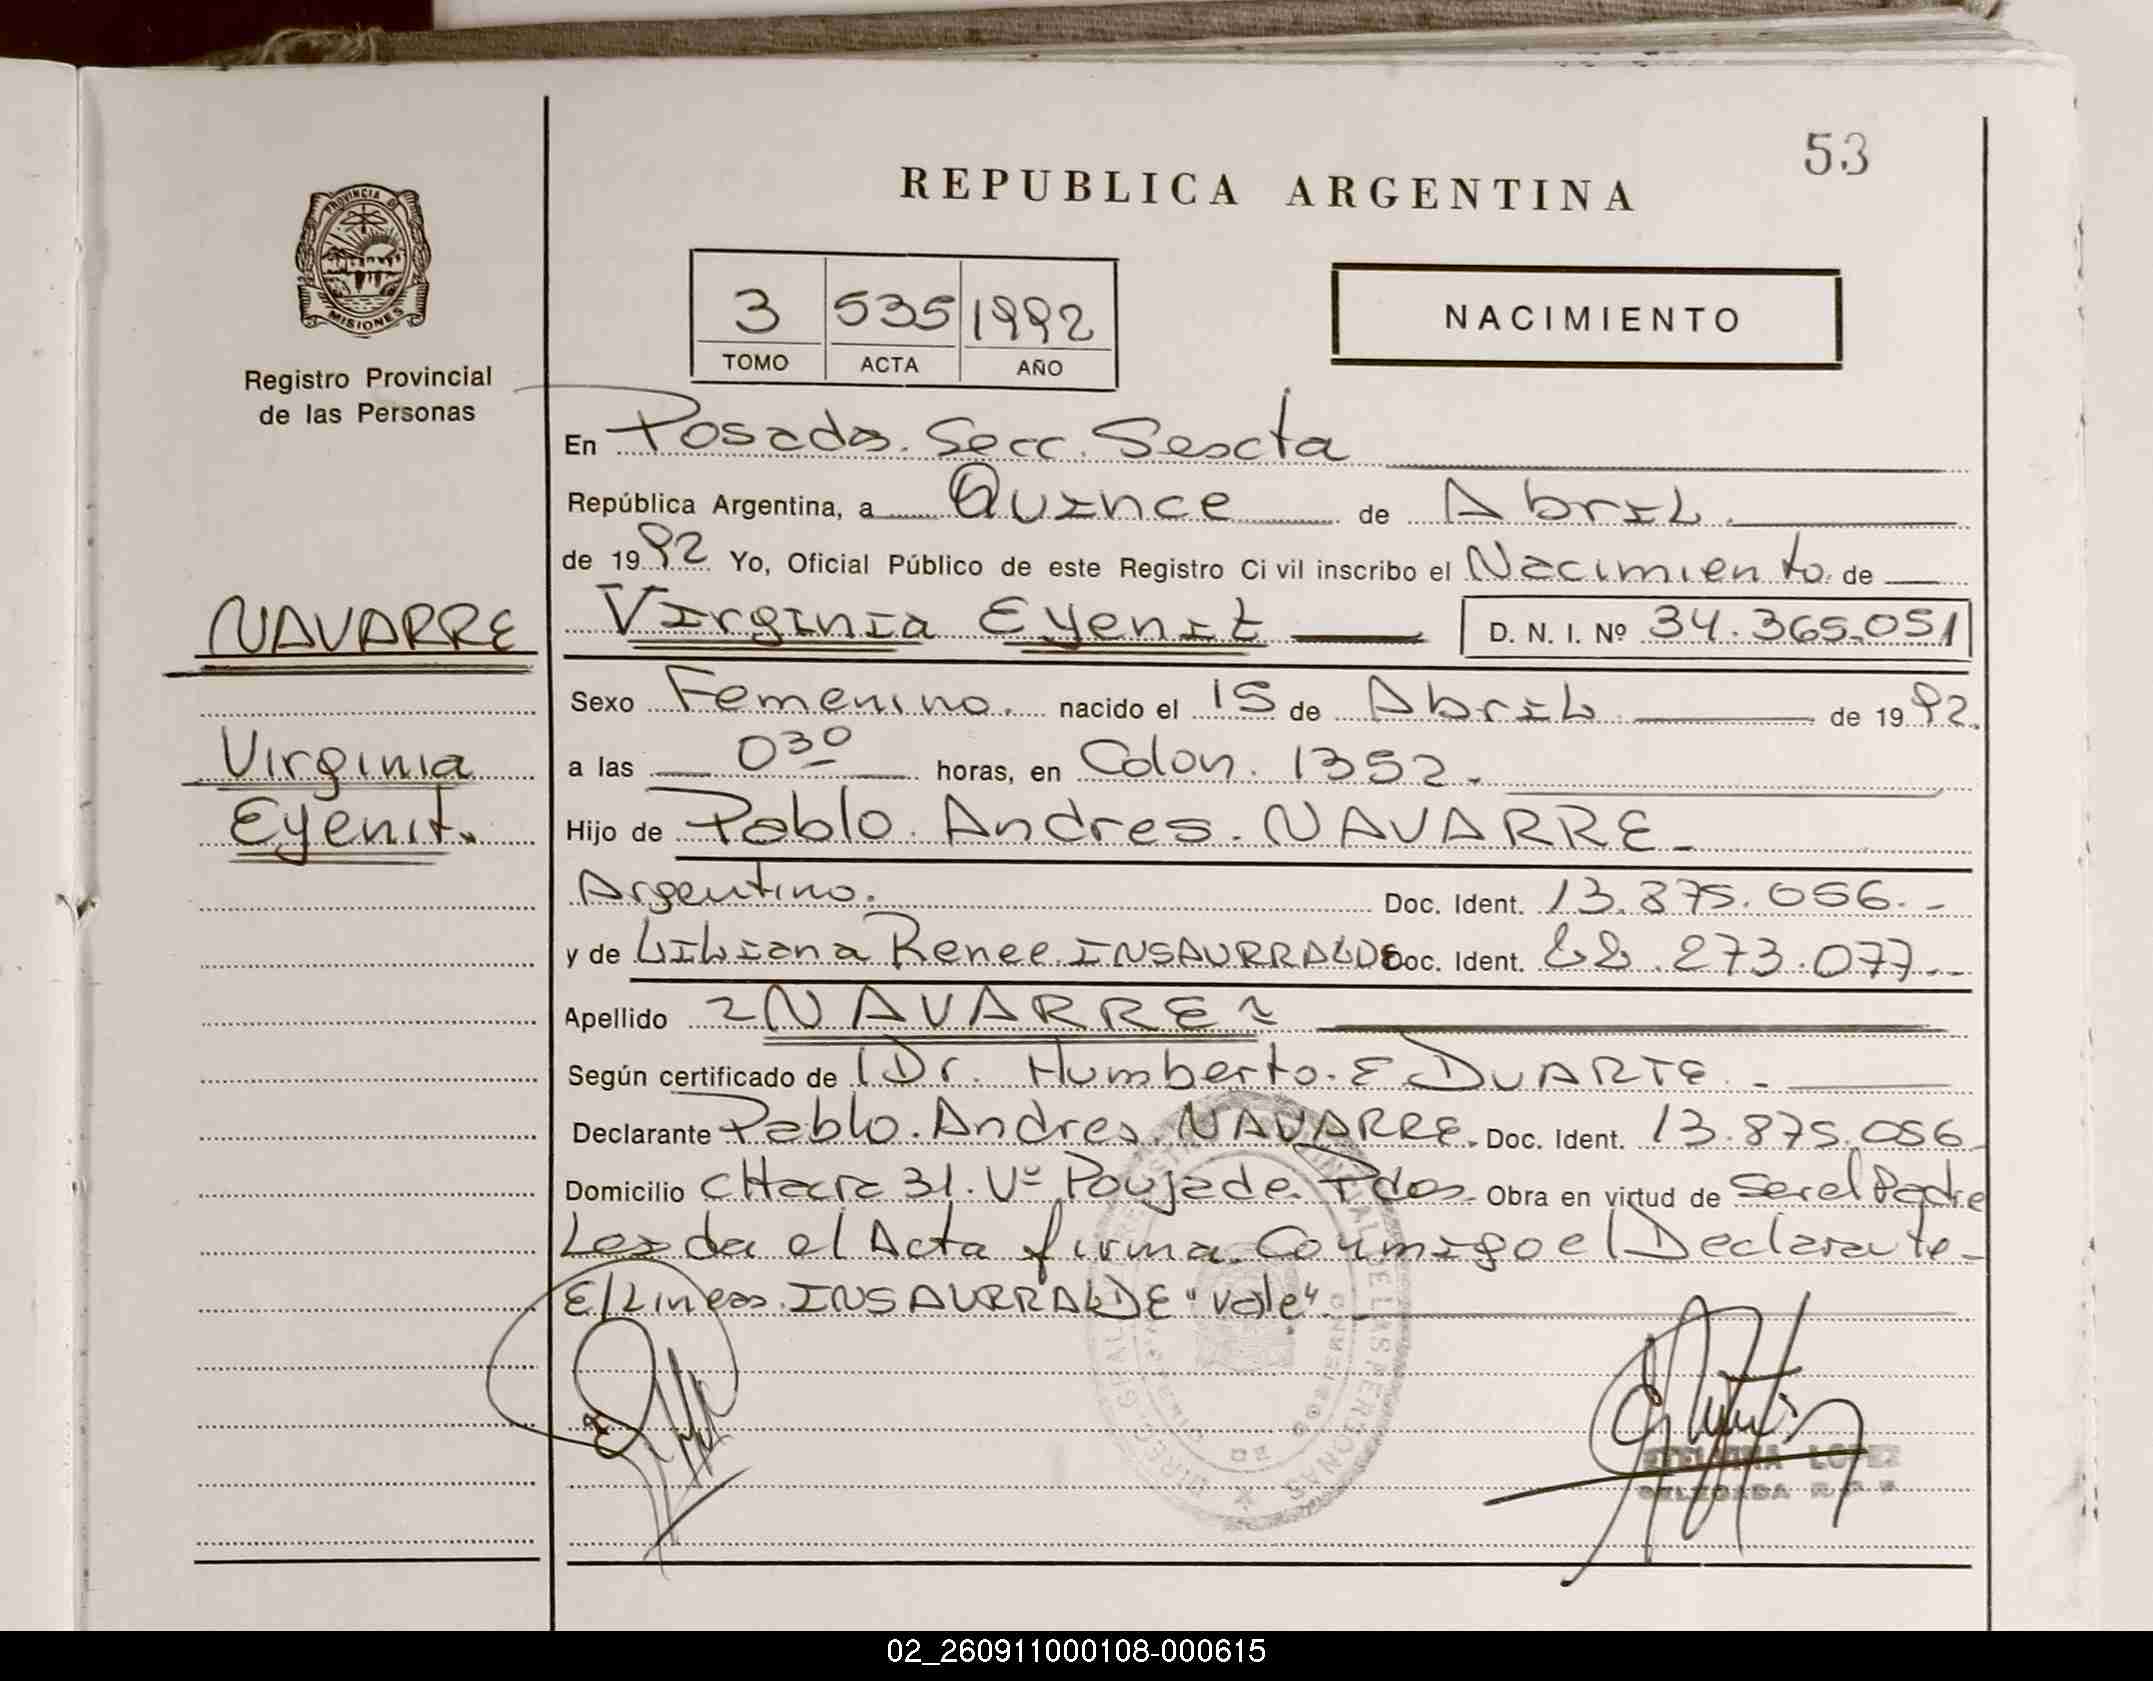 53
REPUBLICA ARGENTINA
PROVINCIA DE
MISIONES
Registro Provincial
de las Personas
3 535 1992
TOMO ACTA AÑO
NACIMIENTO
En Posadas. Secc. Sescta
República Argentina, a Quince de Abril.
de 1992 Yo, Oficial Público de este Registro Civil inscribo el Nacimiento de
NAVARRE
Virginia
Eyenit.
Virginia Eyenit D. N. I. Nº 34.365.051
Sexo Femenino. nacido el 15 de Abril de 1992.
a las 03º horas, en Colon. 1352.
Hijo de Pablo. Andres. NAVARRE
Argentino. Doc. Ident. 13.875.056.-
y de Liliana Renee INSAURRALDE Doc. Ident. 22.273.077.-
Apellido NAVARRE
Según certificado de Dr. Humberto. E DUARTE. -
Declarante Pablo. Andres. NAVARRE. Doc. Ident. 13.875.056
Domicilio cHacra 31. Vº Poujade. Pdas. Obra en virtud de Ser el Padre
Leida el Acta firma Conmigo el Declarante-
E/Lineas. INSAURRALDE "vale"
LOPEZ
DELEGADA R. P. P.
02_260911000108-000615